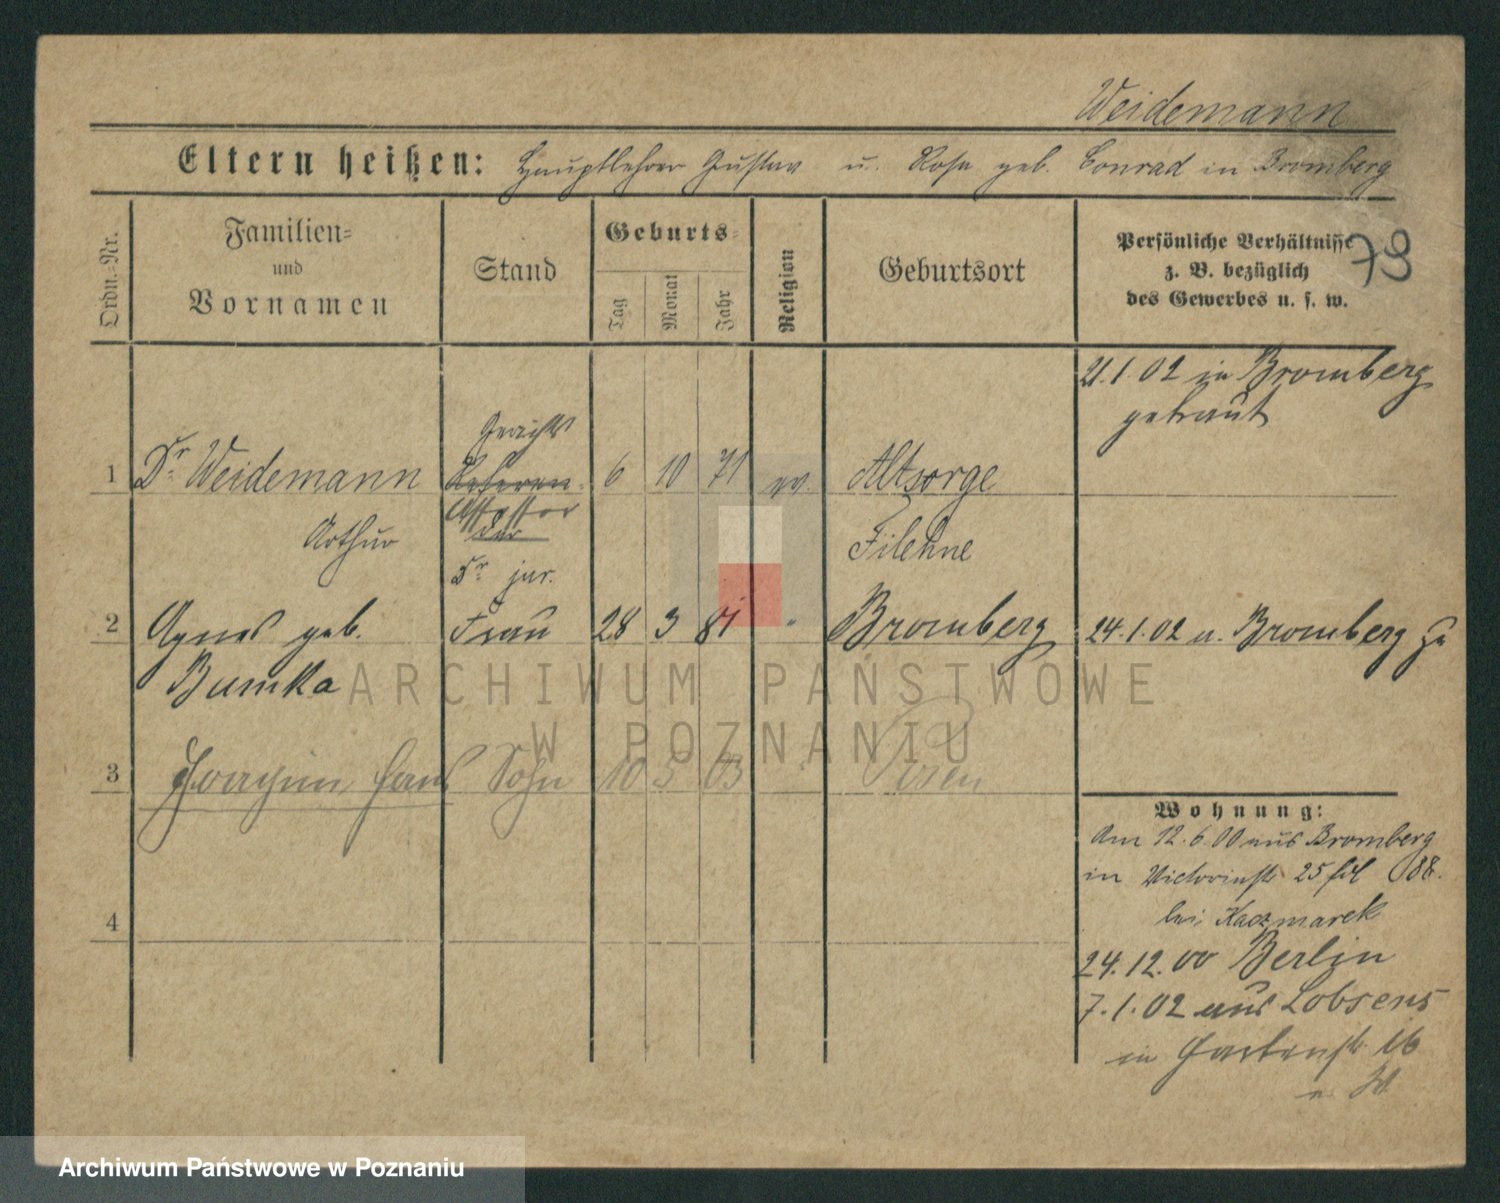 Weidemann
Eltern heißen: Hauptlehrer Gustav u. Rosa geb. Conrad in Bromberg
79
Ordn.-Nr.
Familien-
und
Vornamen
Stand
Geburts-
Tag
Monat
Jahr
Religion
Geburtsort
Persönliche Verhältnisse
z. B. bezüglich
des Gewerbes u. s. w.
21.1.02 in Bromberg
getraut
Gerichts
1 Dr. Weidemann Referen- 6 10 71 ev. Altsorge
Assessor
Arthur dar Filehne
Dr. jur.
2 Agnes geb. Frau 28 3 81 " Bromberg 24.1.02 a. Bromberg zu
Bumka
3 Joachim Hans Sohn 10 5 03 Posen
Wohnung:
Am 12.6.00 aus Bromberg
in Victoriastr. 25 88.
bei Kaczmarek
4
24.12.00 Berlin
7.1.02 aus Lobsens
in Gartenstr. 16
ARCHIWUM PAŃSTWOWE
W POZNANIU
Archiwum Państwowe w Poznaniu